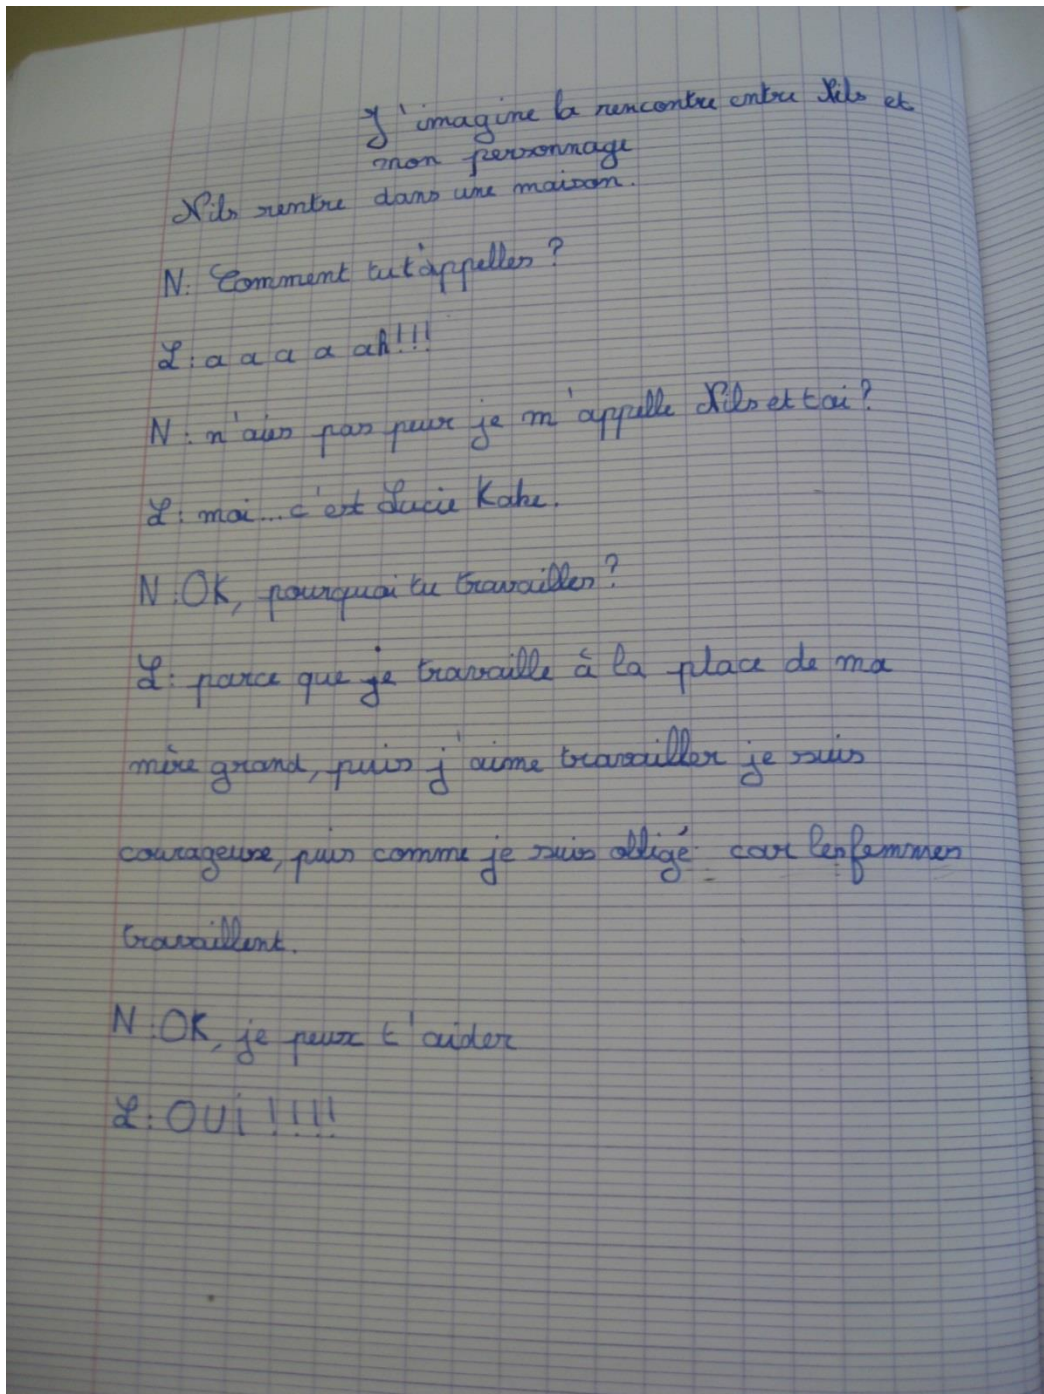 J'imagine la rencontre entre Nils et
mon personnage
Nils rentre dans une maison.
N: Comment tu t'appelles?
L: a a a a ah!!!
N: n'ais pas peur je m'appelle Nils et toi?
L: moi... c'est Lucie Kake.
N: OK, pourquoi tu travailles?
L: parce que je travaille à la place de ma
mère grand, puis j'aime travailler je suis
courageuse, puis comme je suis obligé car les femmes
travaillent.
N: OK, je peux t'aider
L: OUi!!!!